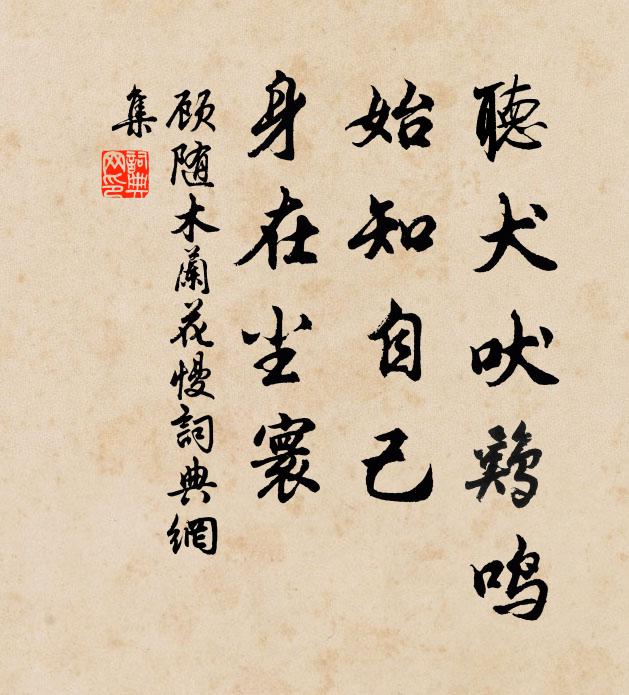 聽犬吠鷄鳴
始知自己
身在尘寰
顾随木蘭花慢詞典網
集
詞典
网印